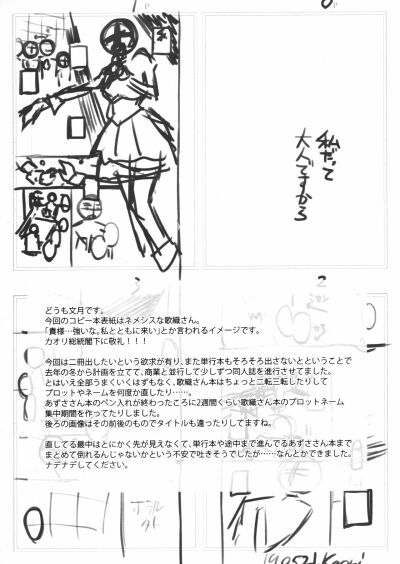 私だって
大人ですから
3
2
どうも文月です。
今回のコピー本表紙はネメシスの歌織さん。
「貴様…強いな。私とともに来い」とか言われるイメージです。
カオリ総統閣下に敬礼！！！
今回は二冊出したいという欲求が有り、また単行本もそろそろ出さないとということで
去年の冬から計画を立てて、商業と並行して少しずつ同人誌を進行させてました。
とはいえ全部うまくいくはずもなく、歌織さん本はちょっと二転三転したりして
プロットやネームを何度か直したり……。
あずささん本のペン入れが終わったころに2週間くらい歌織さん本のプロットネーム
集中期間を作ってたりしました。
後ろの画像はその前後のものでタイトルも違ったりしてますね。
直してる最中はとにかく先が見えなくて、単行本や途中まで進んでるあずささん本まで
まとめて倒れるんじゃないかという不安で吐きそうでしたが……なんとかできました。
ナデナデしてください。